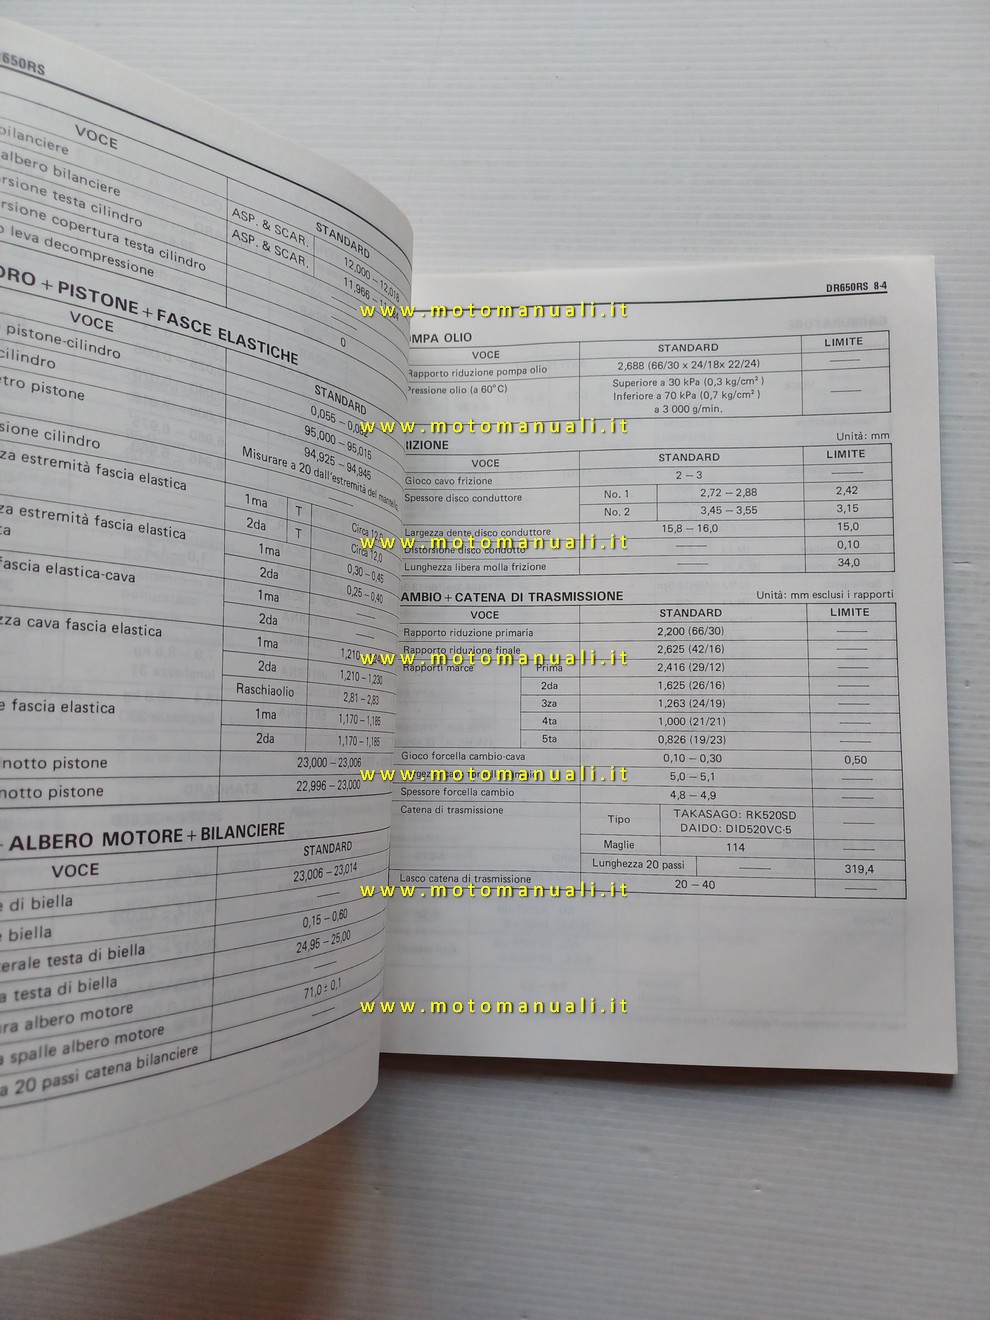 650RS
VOCE
STANDARD
bilanciere
ASP. & SCAR.
12,000 – 12,018
albero bilanciere
ASP. & SCAR.
11,966
rsione testa cilindro
rsione copertura testa cilindro
o leva decompressione
0
DRO + PISTONE + FASCE ELASTICHE
VOCE
STANDARD
pistone-cilindro
cilindro
95,000 – 95,015
etro pistone
94,925 – 94,945
Misurare a 20 dall'estremità del mantello.
sione cilindro
za estremità fascia elastica
1ma T
2da T Circa 12,0
za estremità fascia elastica
ta
1ma 0,30 – 0,45
2da 0,25 – 0,40
fascia elastica-cava
1ma
2da
zza cava fascia elastica
1ma
2da 1,210 – 1,230
Raschiaolio 2,81 – 2,83
e fascia elastica
1ma 1,170 – 1,185
2da 1,170 – 1,185
notto pistone 23,000 – 23,006
notto pistone 22,996 – 23,000
ALBERO MOTORE + BILANCIERE
VOCE STANDARD
e di biella 23,006 – 23,014
e biella
erale testa di biella 0,15 – 0,60
a testa di biella 24,95 – 25,00
ura albero motore
a spalle albero motore 71,0 ± 0,1
a 20 passi catena bilanciere
DR650RS 8-4
www.motomanuali.it
OMPA OLIO
VOCE STANDARD LIMITE
Rapporto riduzione pompa olio 2,688 (66/30 x 24/18x 22/24) ——
Pressione olio (a 60°C) Superiore a 30 kPa (0,3 kg/cm²)
Inferiore a 70 kPa (0,7 kg/cm²) ——
a 3 000 g/min.
www.motomanuali.it
RIZIONE Unità: mm
VOCE STANDARD LIMITE
Gioco cavo frizione 2 – 3 ——
Spessore disco conduttore No. 1 2,72 – 2,88 2,42
No. 2 3,45 – 3,55 3,15
Largezza dente disco conduttore 15,8 – 16,0 15,0
www.motomanuali.it
Distorsione disco condotto —— 0,10
Lunghezza libera molla frizione —— 34,0
AMBIO + CATENA DI TRASMISSIONE Unità: mm esclusi i rapporti
VOCE STANDARD LIMITE
Rapporto riduzione primaria 2,200 (66/30) ——
Rapporto riduzione finale 2,625 (42/16) ——
www.motomanuali.it
Rapporti marce Prima 2,416 (29/12) ——
2da 1,625 (26/16) ——
3za 1,263 (24/19) ——
4ta 1,000 (21/21) ——
5ta 0,826 (19/23) ——
Gioco forcella cambio-cava 0,10 – 0,30 0,50
www.motomanuali.it
5,0 – 5,1 ——
Spessore forcella cambio 4,8 – 4,9 ——
Catena di trasmissione Tipo TAKASAGO: RK520SD
DAIDO: DID520VC-5 ——
Maglie 114 ——
Lunghezza 20 passi —— 319,4
Lasco catena di trasmissione 20 – 40 ——
www.motomanuali.it
www.motomanuali.it